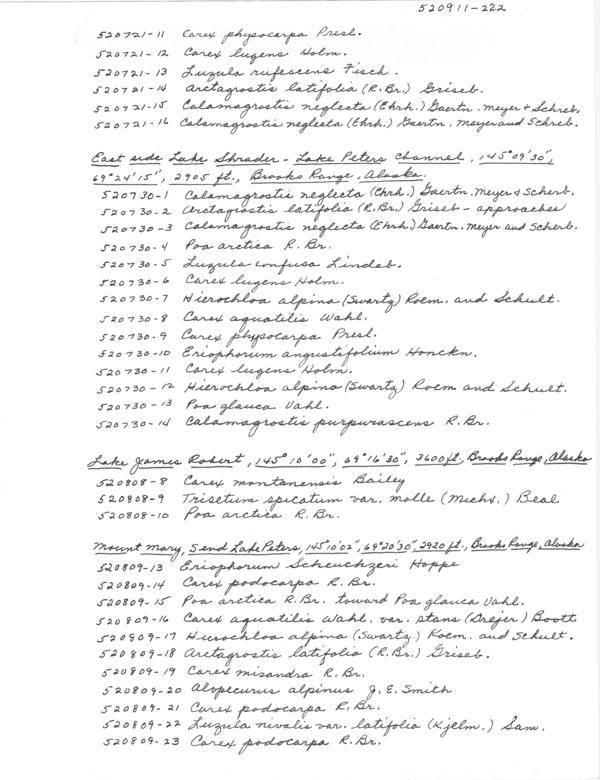 520911-222
520721-11 Carex physocarpa Presl.
520721-12 Carex lugens Holm.
520721-13 Luzula rufescens Fisch.
520721-14 Arctagrostis latifolia (R.Br.) Griseb.
520721-15 Calamagrostis neglecta (Ehrh.) Gaertn. Meyer & Schreb.
520721-16 Calamagrostis neglecta (Ehrh.) Gaertn. Meyer and Schreb.
East side Lake Shrader - Lake Peters Channel, 145°09'30",
69°24'15", 2905 ft., Brooks Range, Alaska.
520730-1 Calamagrostis neglecta (Ehrh.) Gaertn. Meyer & Scherb.
520730-2 Arctagrostis latifolia (R.Br.) Griseb - approaches
520730-3 Calamagrostis neglecta (Ehrh.) Gaertn. Meyer and Scherb.
520730-4 Poa arctica R. Br.
520730-5 Luzula confusa Lindeb.
520730-6 Carex lugens Holm.
520730-7 Hierochloa alpina (Swartz) Roem. and Schult.
520730-8 Carex aquatilis Wahl.
520730-9 Carex physocarpa Presl.
520730-10 Eriophorum angustifolium Honckn.
520730-11 Carex lugens Holm.
520730-12 Hierochloa alpina (Swartz) Roem and Schult.
520730-13 Poa glauca Vahl.
520730-14 Calamagrostis purpurascens R.Br.
Lake James Robert, 145°10'00", 69°16'30", 3600 ft., Brooks Range, Alaska
520808-8 Carex montanensis Bailey
520808-9 Trisetum spicatum var. molle (Michx.) Beal
520808-10 Poa arctica R. Br.
Mount Mary, S end Lake Peters, 145°10'02", 69°20'30", 2920 ft., Brooks Range, Alaska
520809-13 Eriophorum Scheuchzeri Hoppe
520809-14 Carex podocarpa R. Br.
520809-15 Poa arctica R. Br. toward Poa glauca Vahl.
520809-16 Carex aquatilis Wahl. var. stans (Drejer) Boott
520809-17 Hierochloa alpina (Swartz) Roem. and Schult.
520809-18 Arctagrostis latifolia (R.Br.) Griseb.
520809-19 Carex misandra R. Br.
520809-20 Alopecurus alpinus J. E. Smith
520809-21 Carex podocarpa R. Br.
520809-22 Luzula nivalis var. latifolia (Kjelm.) Sam.
520809-23 Carex podocarpa R. Br.